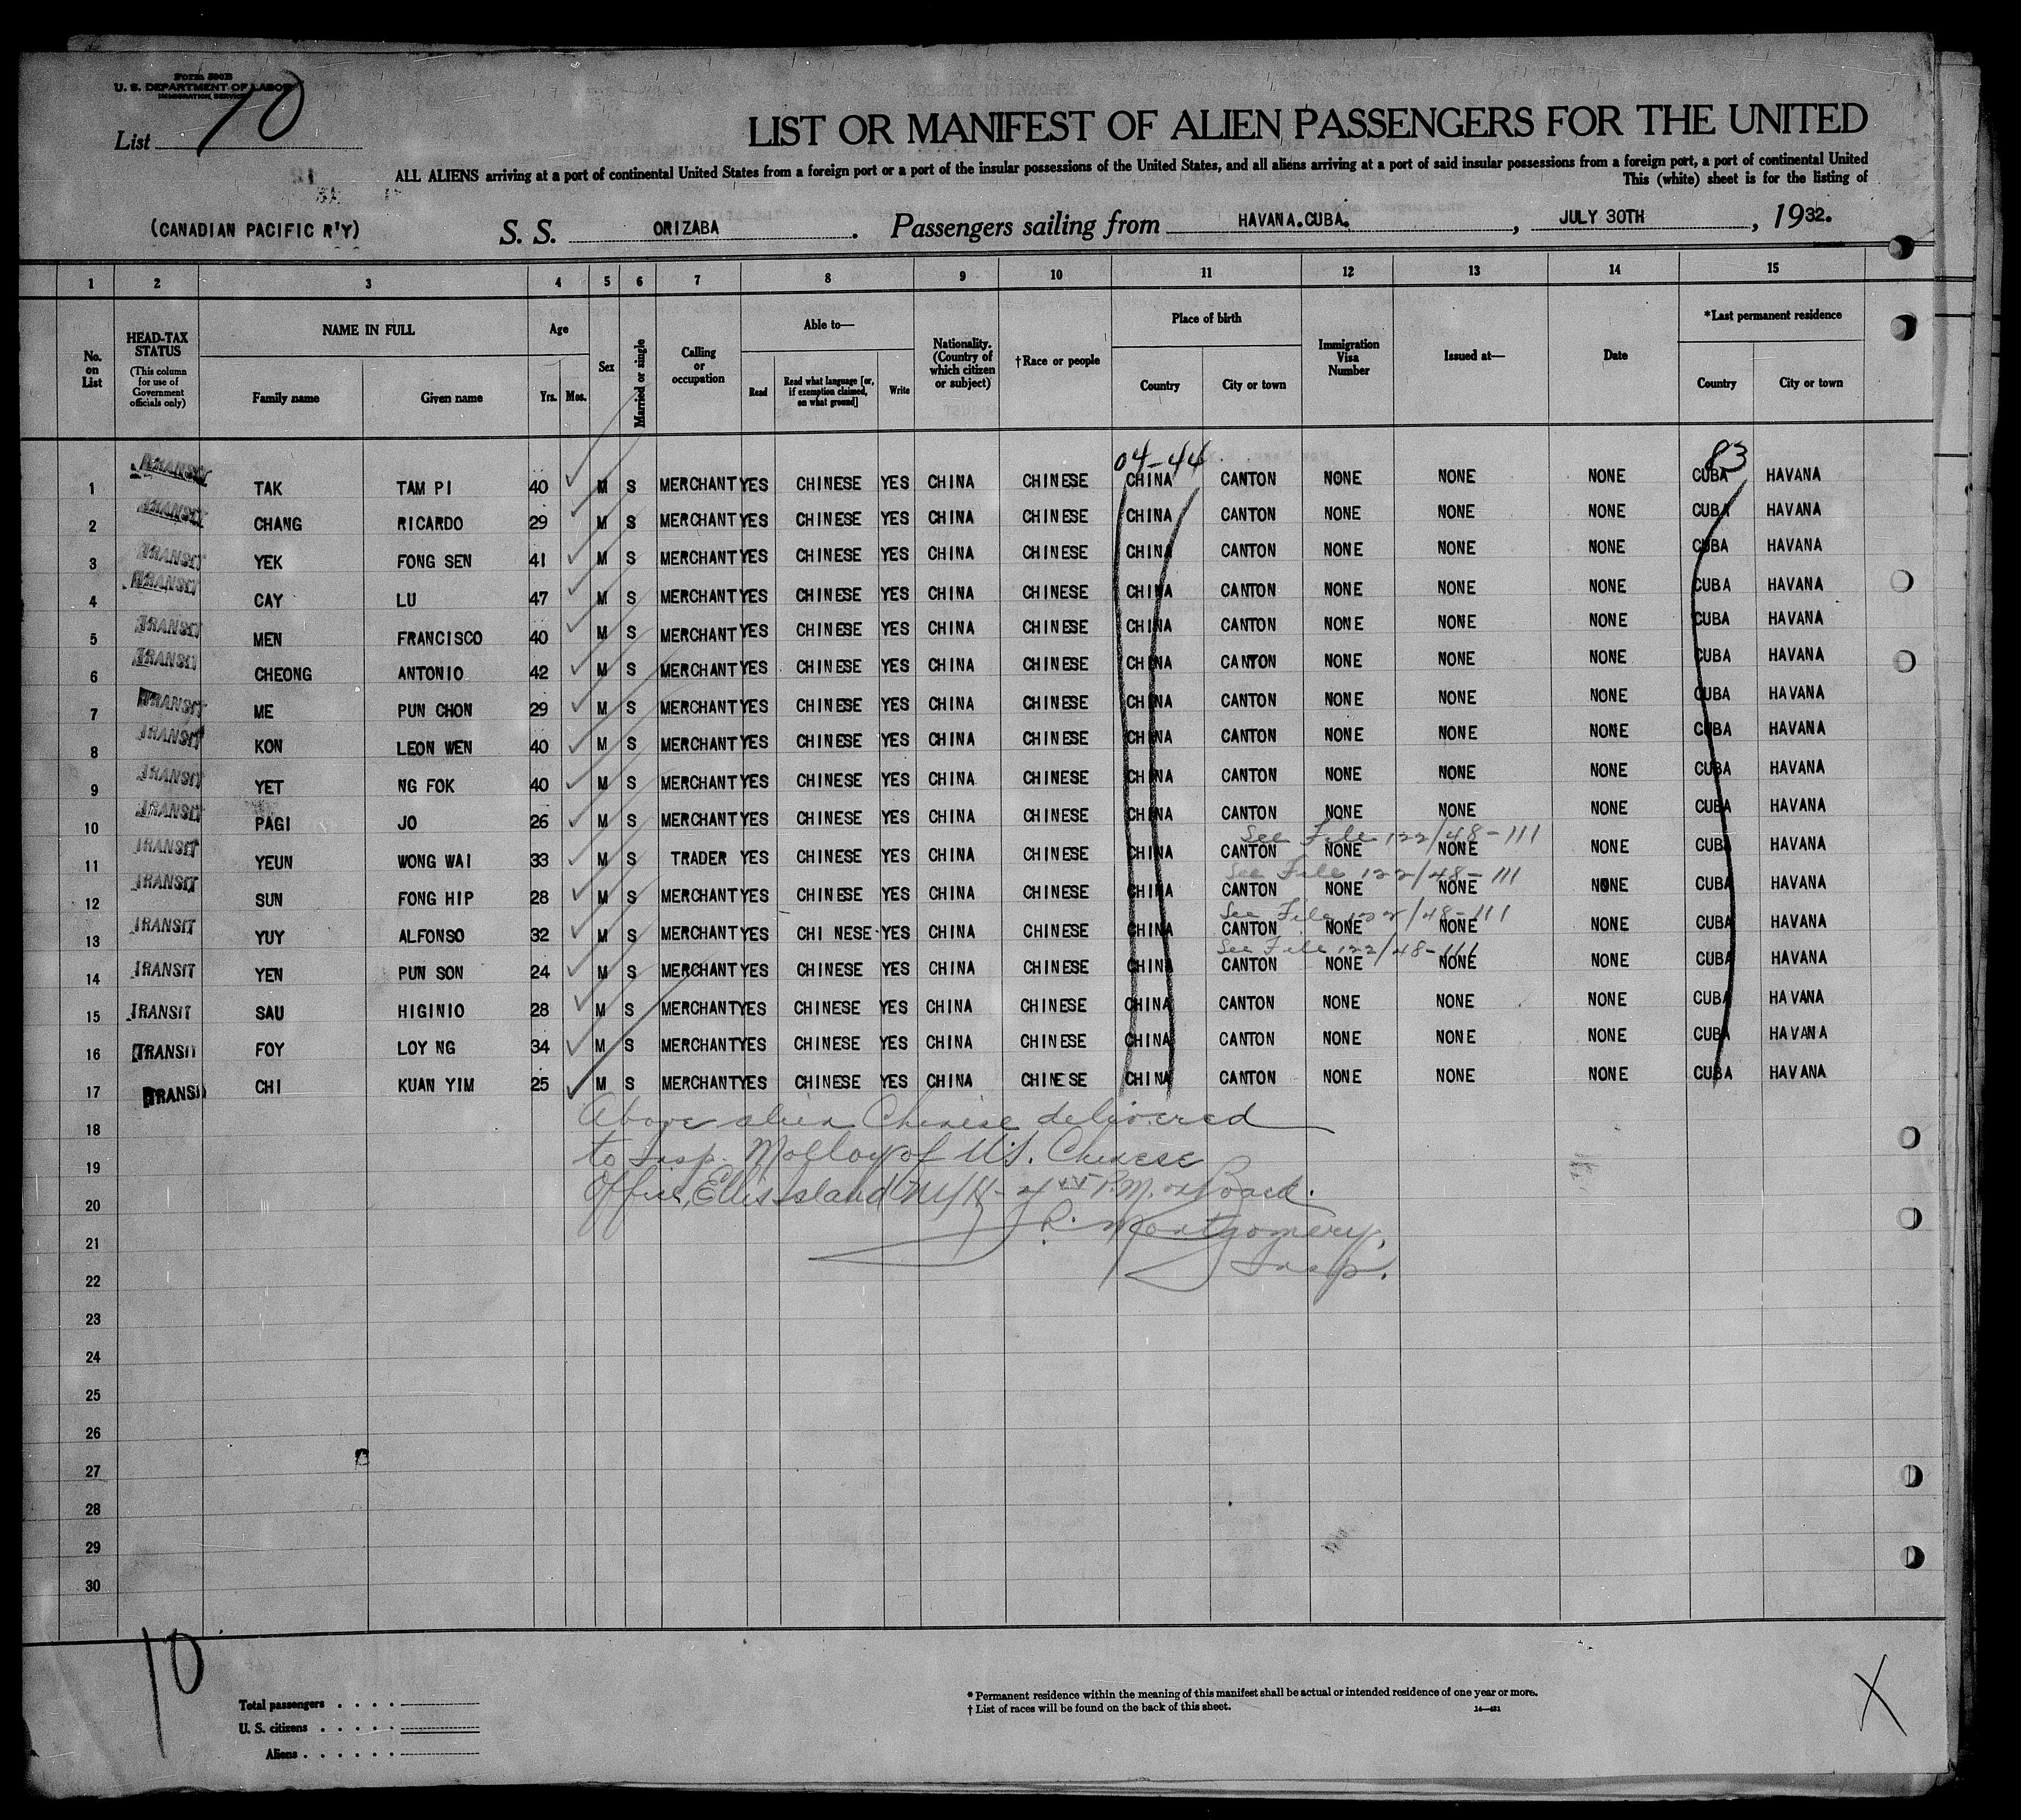 Form 500B
U. S. DEPARTMENT OF LABOR
IMMIGRATION SERVICE
List 10
LIST OR MANIFEST OF ALIEN PASSENGERS FOR THE UNITED
ALL ALIENS arriving at a port of continental United States from a foreign port or a port of the insular possessions of the United States, and all aliens arriving at a port of said insular possessions from a foreign port, a port of continental United
This (white) sheet is for the listing of
(CANADIAN PACIFIC R'Y) S. S. ORIZABA. Passengers sailing from HAVANA.CUBA., JULY 30TH, 1932.
1 2 3 4 5 6 7 8 9 10 11 12 13 14 15
No. on List
HEAD-TAX STATUS
(This column for use of Government officials only)
NAME IN FULL
Family name Given name
Age
Yrs. Mos.
Sex
Married or single
Calling or occupation
Able to—
Read
Read what language [or, if exemption claimed, on what ground]
Write
Nationality. (Country of which citizen or subject)
†Race or people
Place of birth
Country City or town
Immigration Visa Number
Issued at—
Date
*Last permanent residence
Country City or town
04-44 83
1 TRANSIT TAK TAM PI 40 M S MERCHANT YES CHINESE YES CHINA CHINESE CHINA CANTON NONE NONE NONE CUBA HAVANA
2 TRANSIT CHANG RICARDO 29 M S MERCHANT YES CHINESE YES CHINA CHINESE CHINA CANTON NONE NONE NONE CUBA HAVANA
3 TRANSIT YEK FONG SEN 41 M S MERCHANT YES CHINESE YES CHINA CHINESE CHINA CANTON NONE NONE NONE CUBA HAVANA
4 TRANSIT CAY LU 47 M S MERCHANT YES CHINESE YES CHINA CHINESE CHINA CANTON NONE NONE NONE CUBA HAVANA
5 TRANSIT MEN FRANCISCO 40 M S MERCHANT YES CHINESE YES CHINA CHINESE CHINA CANTON NONE NONE NONE CUBA HAVANA
6 TRANSIT CHEONG ANTONIO 42 M S MERCHANT YES CHINESE YES CHINA CHINESE CHINA CANTON NONE NONE NONE CUBA HAVANA
7 TRANSIT ME PUN CHON 29 M S MERCHANT YES CHINESE YES CHINA CHINESE CHINA CANTON NONE NONE NONE CUBA HAVANA
8 TRANSIT KON LEON WEN 40 M S MERCHANT YES CHINESE YES CHINA CHINESE CHINA CANTON NONE NONE NONE CUBA HAVANA
9 TRANSIT YET NG FOK 40 M S MERCHANT YES CHINESE YES CHINA CHINESE CHINA CANTON NONE NONE NONE CUBA HAVANA
10 TRANSIT PAGI JO 26 M S MERCHANT YES CHINESE YES CHINA CHINESE CHINA CANTON NONE NONE NONE CUBA HAVANA
See File 122/48-111
11 TRANSIT YEUN WONG WAI 33 M S TRADER YES CHINESE YES CHINA CHINESE CHINA CANTON NONE NONE NONE CUBA HAVANA
See File 122/48-111
12 TRANSIT SUN FONG HIP 28 M S MERCHANT YES CHINESE YES CHINA CHINESE CHINA CANTON NONE NONE NONE CUBA HAVANA
See File 122/48-111
13 TRANSIT YUY ALFONSO 32 M S MERCHANT YES CHI NESE YES CHINA CHINESE CHINA CANTON NONE NONE NONE CUBA HAVANA
See File 122/48-111
14 TRANSIT YEN PUN SON 24 M S MERCHANT YES CHINESE YES CHINA CHINESE CHINA CANTON NONE NONE NONE CUBA HAVANA
15 TRANSIT SAU HIGINIO 28 M S MERCHANT YES CHINESE YES CHINA CHINESE CHINA CANTON NONE NONE NONE CUBA HAVANA
16 TRANSIT FOY LOY NG 34 M S MERCHANT YES CHINESE YES CHINA CHINESE CHINA CANTON NONE NONE NONE CUBA HAVANA
17 TRANSIT CHI KUAN YIM 25 M S MERCHANT YES CHINESE YES CHINA CHINESE CHINA CANTON NONE NONE NONE CUBA HAVANA
Above alien Chinese delivered
18
to Insp. Molloy of U.S. Chinese
19
Office, Ellis Island P.M. on Board.
20
R. Montgomery,
21
Insp.
22
23
24
25
26
27
28
29
30
10
Total passengers
U. S. citizens
Aliens
* Permanent residence within the meaning of this manifest shall be actual or intended residence of one year or more.
† List of races will be found on the back of this sheet.
X